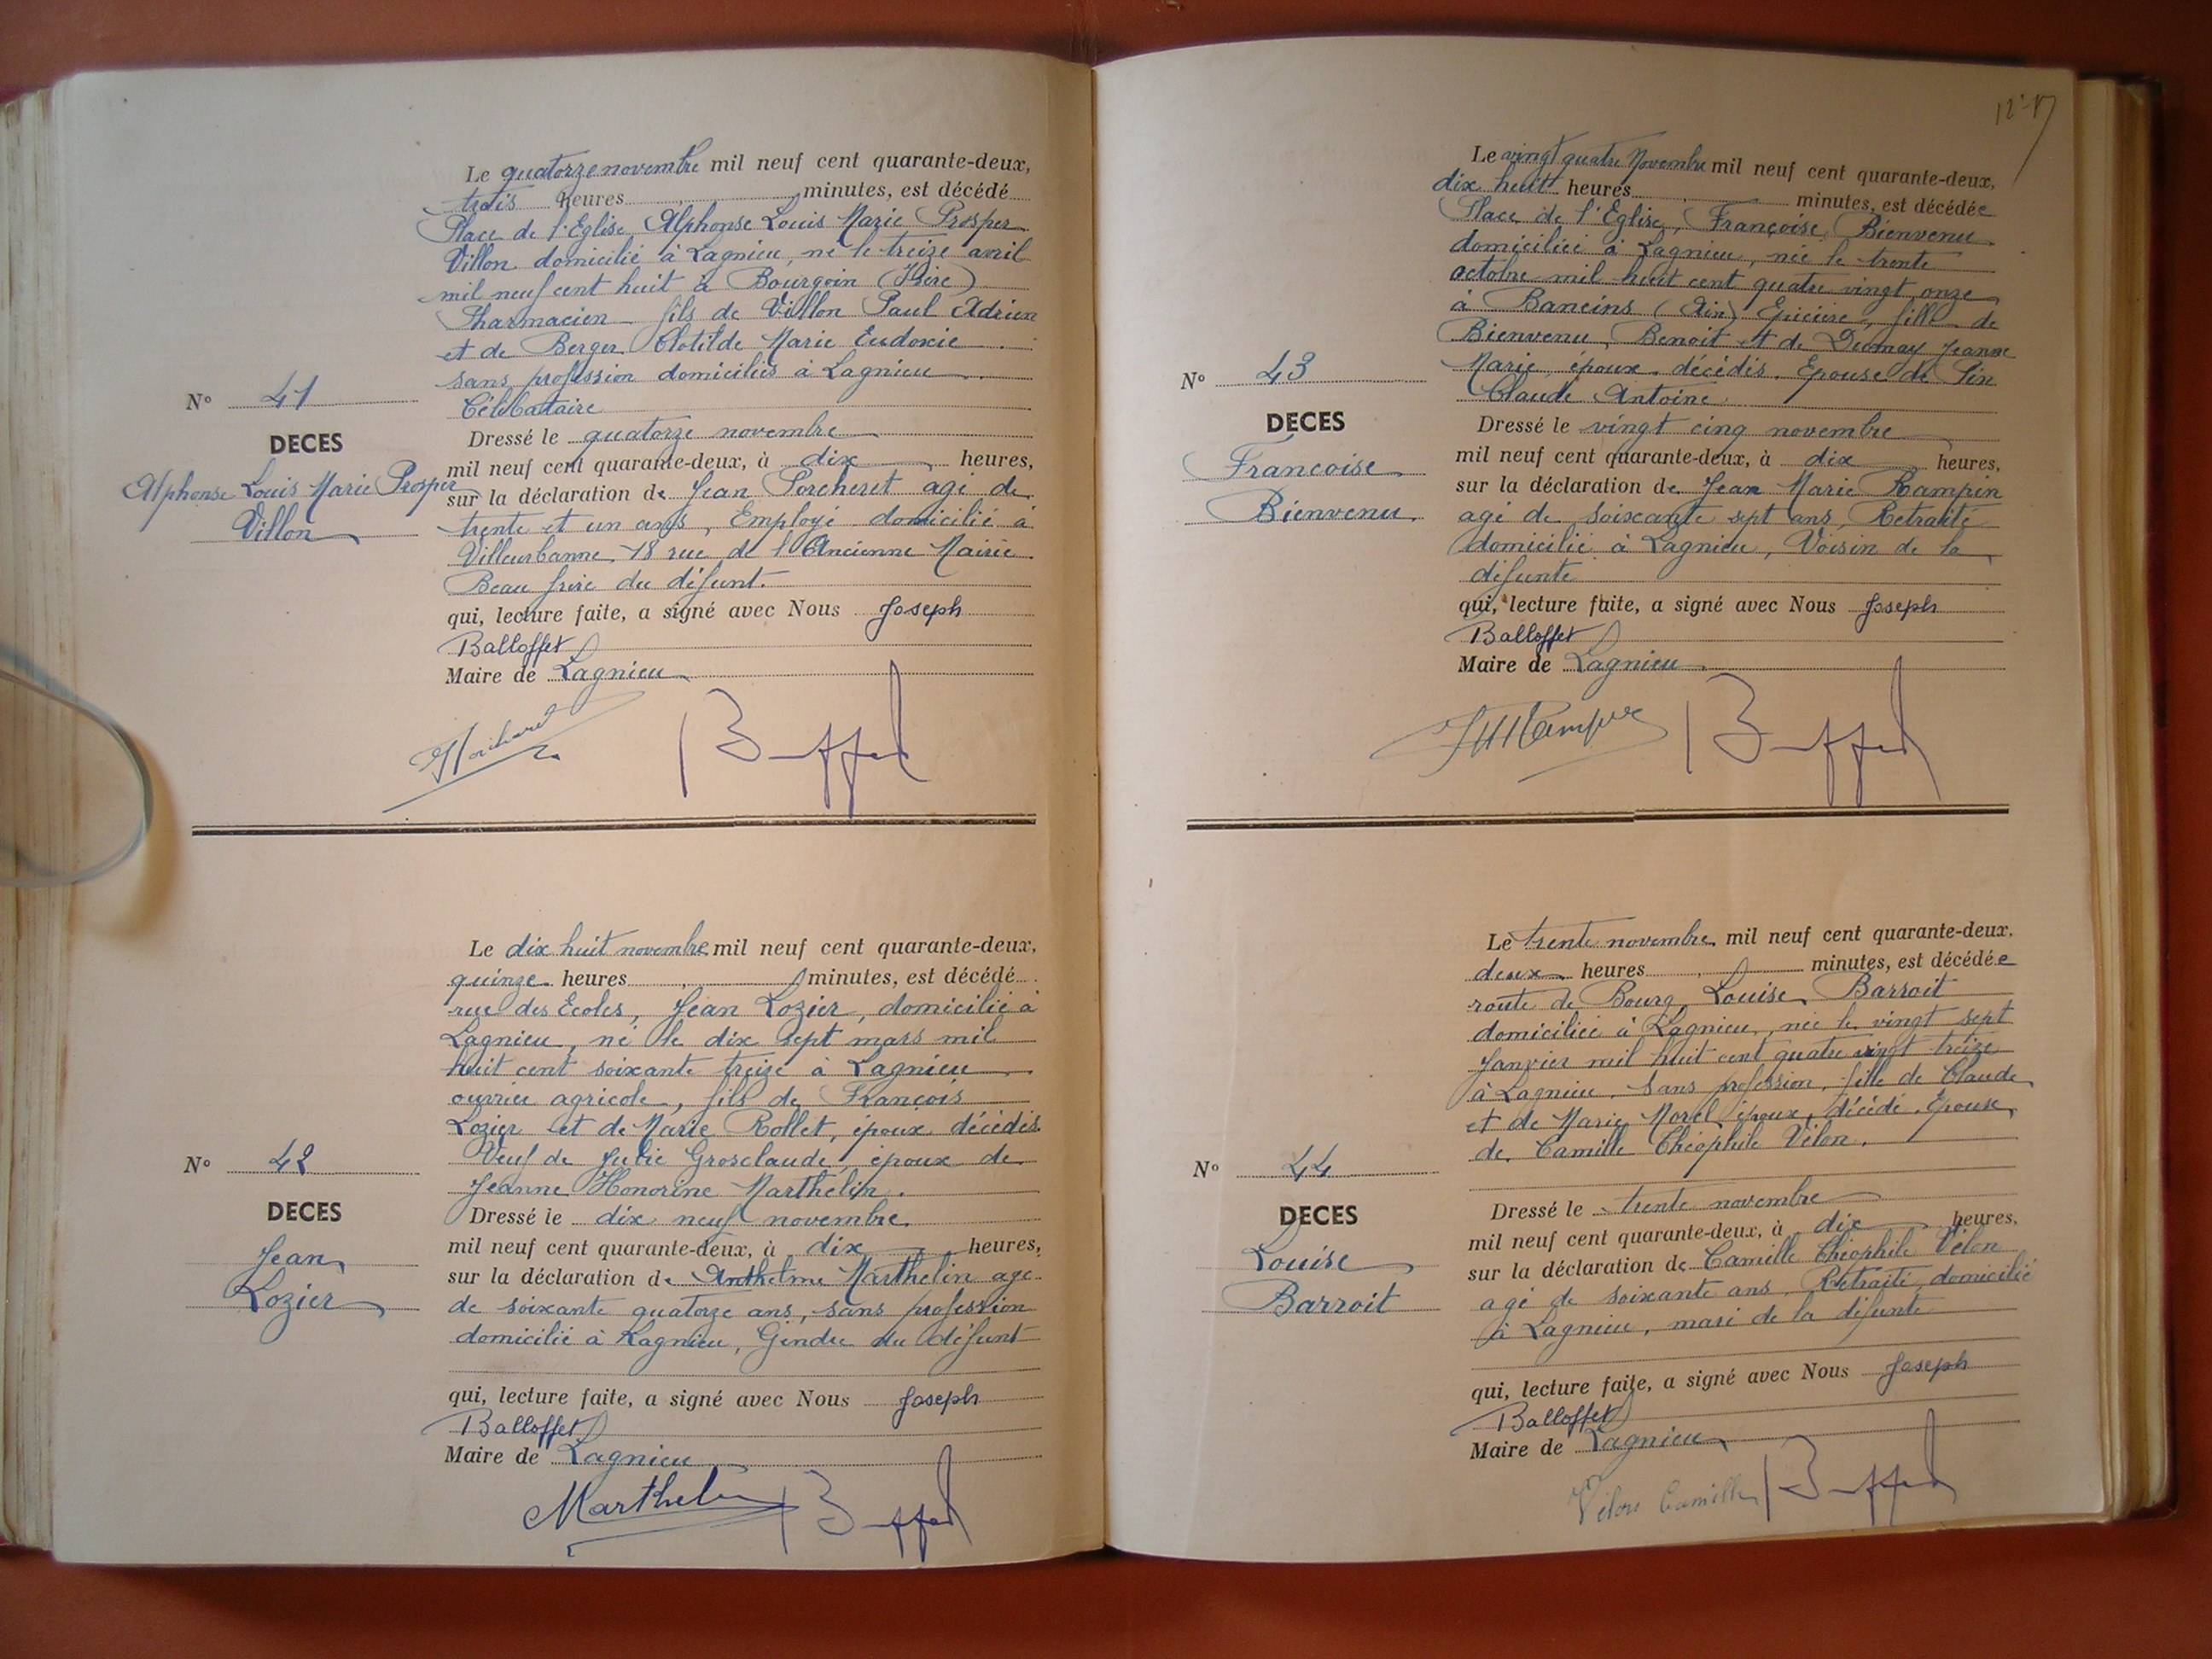 Le quatorze novembre mil neuf cent quarante-deux,
trois heures minutes, est décédé
Place de l'Eglise, Alphonse Louis Marie Prosper
Villon domicilié à Lagnieu, né le treize avril
mil neuf cent huit à Bourgoin (Isère)
Pharmacien fils de Villon Paul Adrien
et de Berger Clotilde Marie Eudoxie
sans profession domiciliés à Lagnieu
Célibataire
N° 41
DECES
Alphonse Louis Marie Prosper
Villon
Dressé le quatorze novembre
mil neuf cent quarante-deux, à dix heures,
sur la déclaration de Jean Porcheret agé de
trente et un ans, Employé domicilié à
Villeurbanne 18 rue de l'Ancienne Mairie
Beau frère du défunt.
qui, lecture faite, a signé avec Nous Joseph
Balloffet
Maire de Lagnieu
Le dix huit novembre mil neuf cent quarante-deux,
quinze heures minutes, est décédé
rue des Ecoles, Jean Lozier, domicilié à
Lagnieu, né le dix sept mars mil
huit cent soixante treize à Lagnieu
ouvrier agricole, fils de François
Lozier et de Marie Rollet, époux décédés
Veuf de Julie Grosclaude, époux de
Jeanne Honorine Marthelin.
N° 42
DECES
Jean
Lozier
Dressé le dix neuf novembre
mil neuf cent quarante-deux, à dix heures,
sur la déclaration de Anthelme Marthelin agé
de soixante quatorze ans, sans profession
domicilié à Lagnieu, Gendre du défunt
qui, lecture faite, a signé avec Nous Joseph
Balloffet
Maire de Lagnieu
Marthelin
Le vingt quatre Novembre mil neuf cent quarante-deux,
dix huit heures minutes, est décédée
Place de l'Eglise, Françoise Bienvenu
domiciliée à Lagnieu, née le trente
octobre mil huit cent quatre vingt onze
à Baneins (Ain) Epicière, fille de
Bienvenu, Benoit et de Dumay Jeanne
Marie, époux décédés. Epouse de Pin
Claude Antoine
N° 43
DECES
Françoise
Bienvenu
Dressé le vingt cinq novembre
mil neuf cent quarante-deux, à dix heures,
sur la déclaration de Jean Marie Rampin
agé de soixante sept ans, Retraité
domicilié à Lagnieu, Voisin de la
défunte
qui, lecture faite, a signé avec Nous Joseph
Balloffet
Maire de Lagnieu
Le trente novembre mil neuf cent quarante-deux,
deux heures minutes, est décédée
route de Bourg, Louise Barroit
domiciliée à Lagnieu, née le vingt sept
Janvier mil huit cent quatre vingt treize
à Lagnieu. Sans profession, fille de Claude
et de Marie Morel époux, décédé. Epouse
de Camille Théophile Vélon.
N° 44
DECES
Louise
Barroit
Dressé le trente novembre
mil neuf cent quarante-deux, à dix heures,
sur la déclaration de Camille Théophile Vélon
agé de soixante ans, Retraité, domicilié
à Lagnieu, mari de la défunte
qui, lecture faite, a signé avec Nous Joseph
Balloffet
Maire de Lagnieu
Vélon Camille